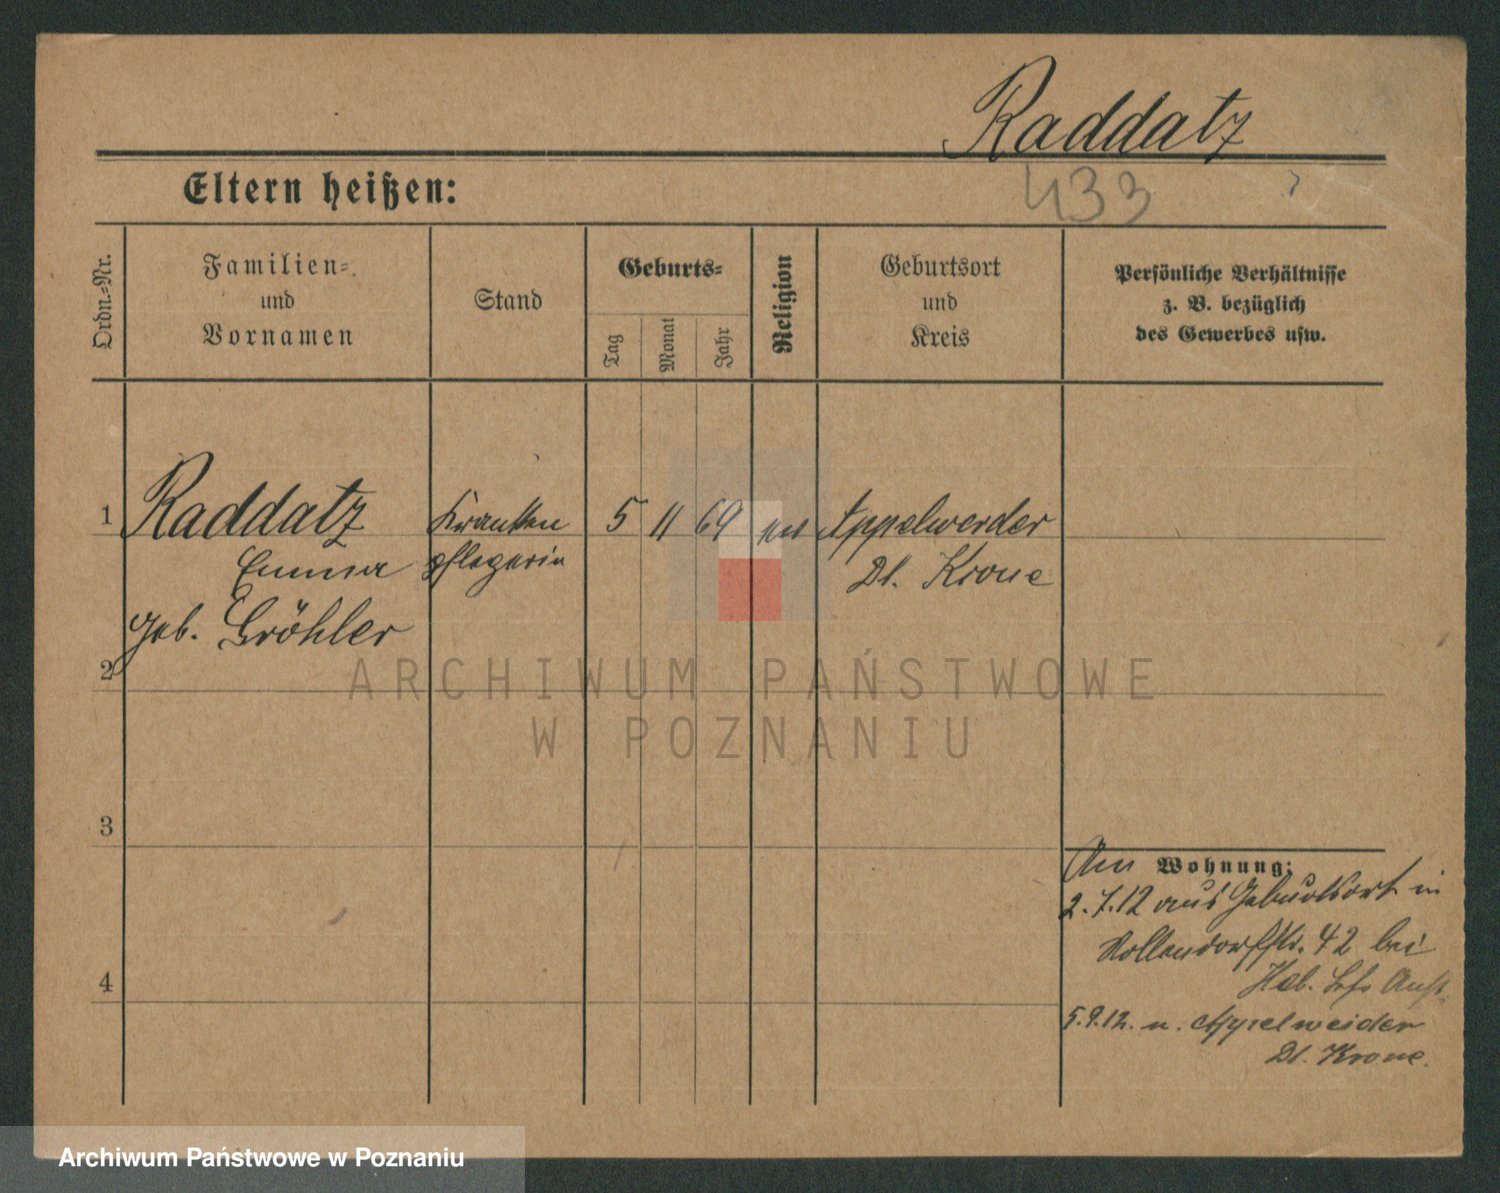 Raddatz
Eltern heißen:
433
Ordn.-Nr.
Familien-
und
Vornamen
Stand
Geburts-
Tag
Monat
Jahr
Religion
Geburtsort
und
Kreis
Persönliche Verhältnisse
z. B. bezüglich
des Gewerbes usw.
1 Raddatz Kranken 5 11 69 Appelwerder
Emma pflegerin Dt. Krone
geb. Gröhler
2
3
4
Am Wohnung:
2.7.12 aus Geburtsort in
Nollendorfstr. 42 bei
Heb. Anst.
5.9.12. n. Appelwerder
Dt. Krone.
ARCHIWUM PAŃSTWOWE
W POZNANIU
Archiwum Państwowe w Poznaniu